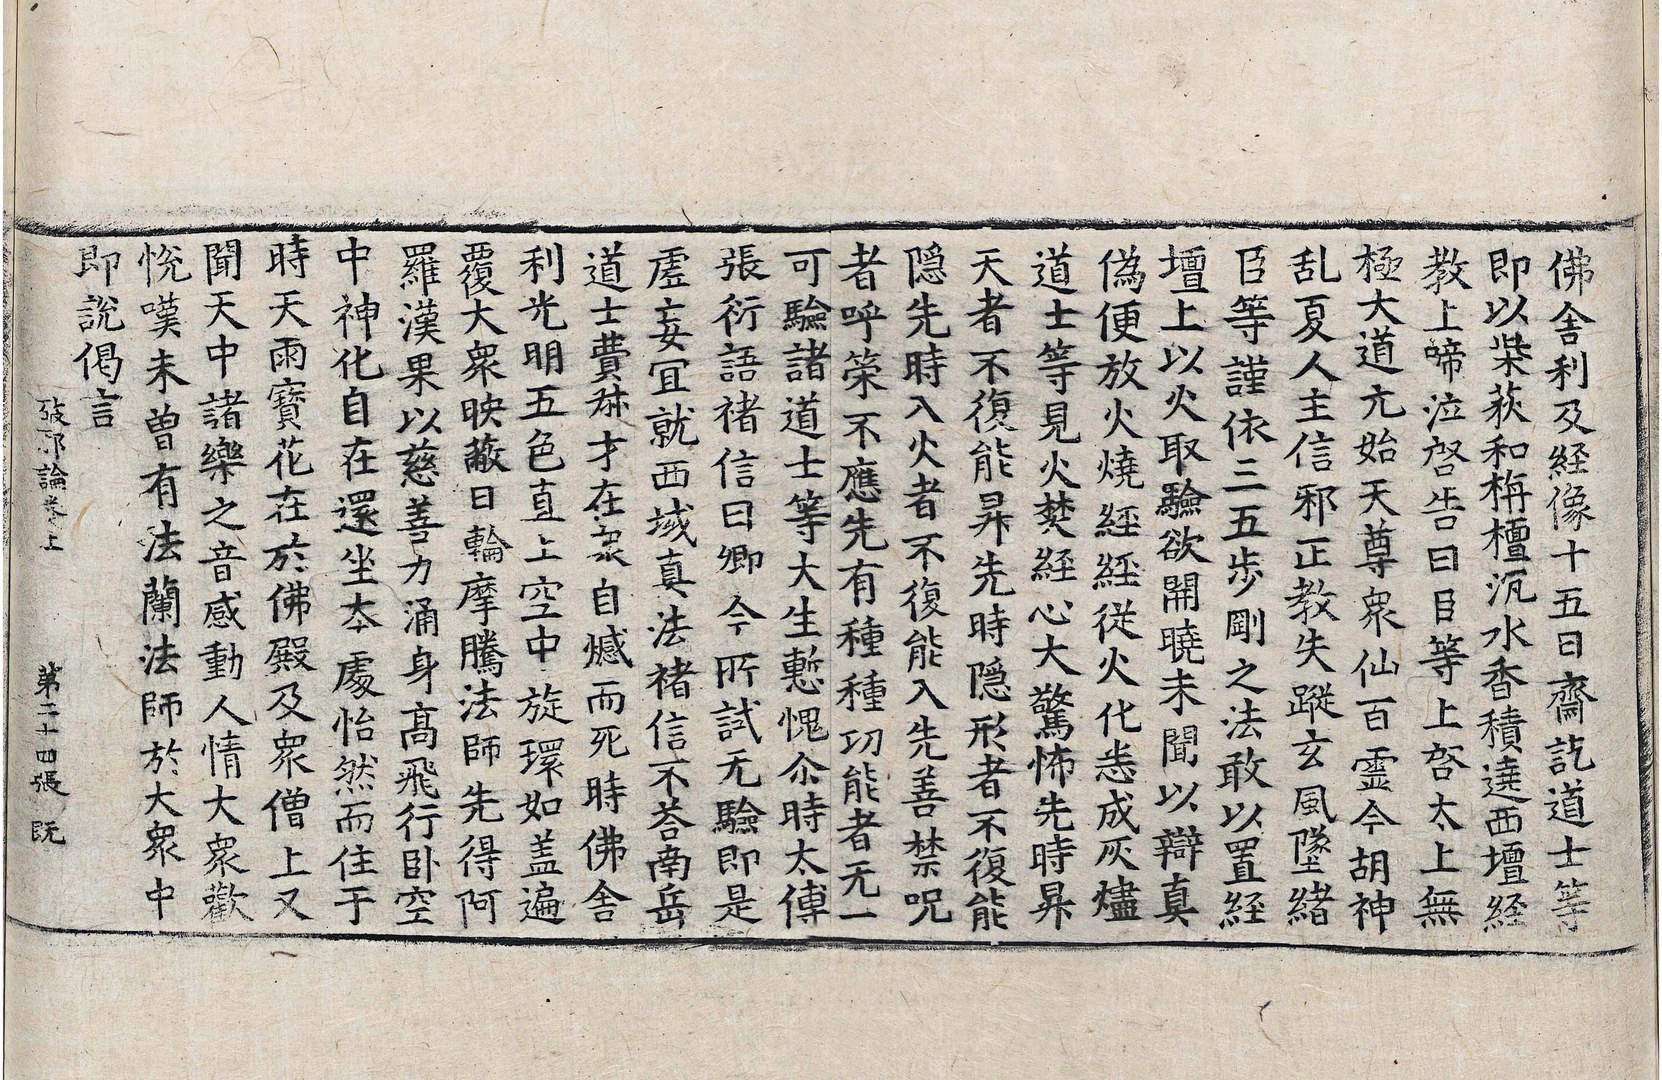 佛舍利及経像十五日齋訖道士等
即以柴荻和栴檀沉水香積遶西壇経
教上啼泣啓告曰臣等上啓太上無
極大道元始天尊衆仙百霊今胡神
乱夏人主信邪正教失蹤玄風墜緒
臣等謹依三五步剛之法敢以置経
壇上以火取驗欲開曉未聞以辯真
偽便放火燒経経従火化悉成灰燼
道士等見火焚経心大驚怖先時昇
天者不復能昇先時隠形者不復能
隠先時入火者不復能入先善禁呪
者呼策不應先有種種功能者无一
可驗諸道士等大生慙愧尒時太傅
張衍語禇信曰卿今所試无驗即是
虚妄宜就西域真法禇信不荅南岳
道士費𥘵才在衆自憾而死時佛舍
利光明五色直上空中旋環如盖遍
覆大衆映蔽日輪摩騰法師先得阿
羅漢果以慈善力涌身髙飛行卧空
中神化自在還坐夲處怡然而住于
時天雨寳花在於佛殿及衆僧上又
聞天中諸樂之音感動人情大衆歡
悅嘆未曾有法蘭法師於大衆中
即說偈言
破邪論卷上 第二十四張 既